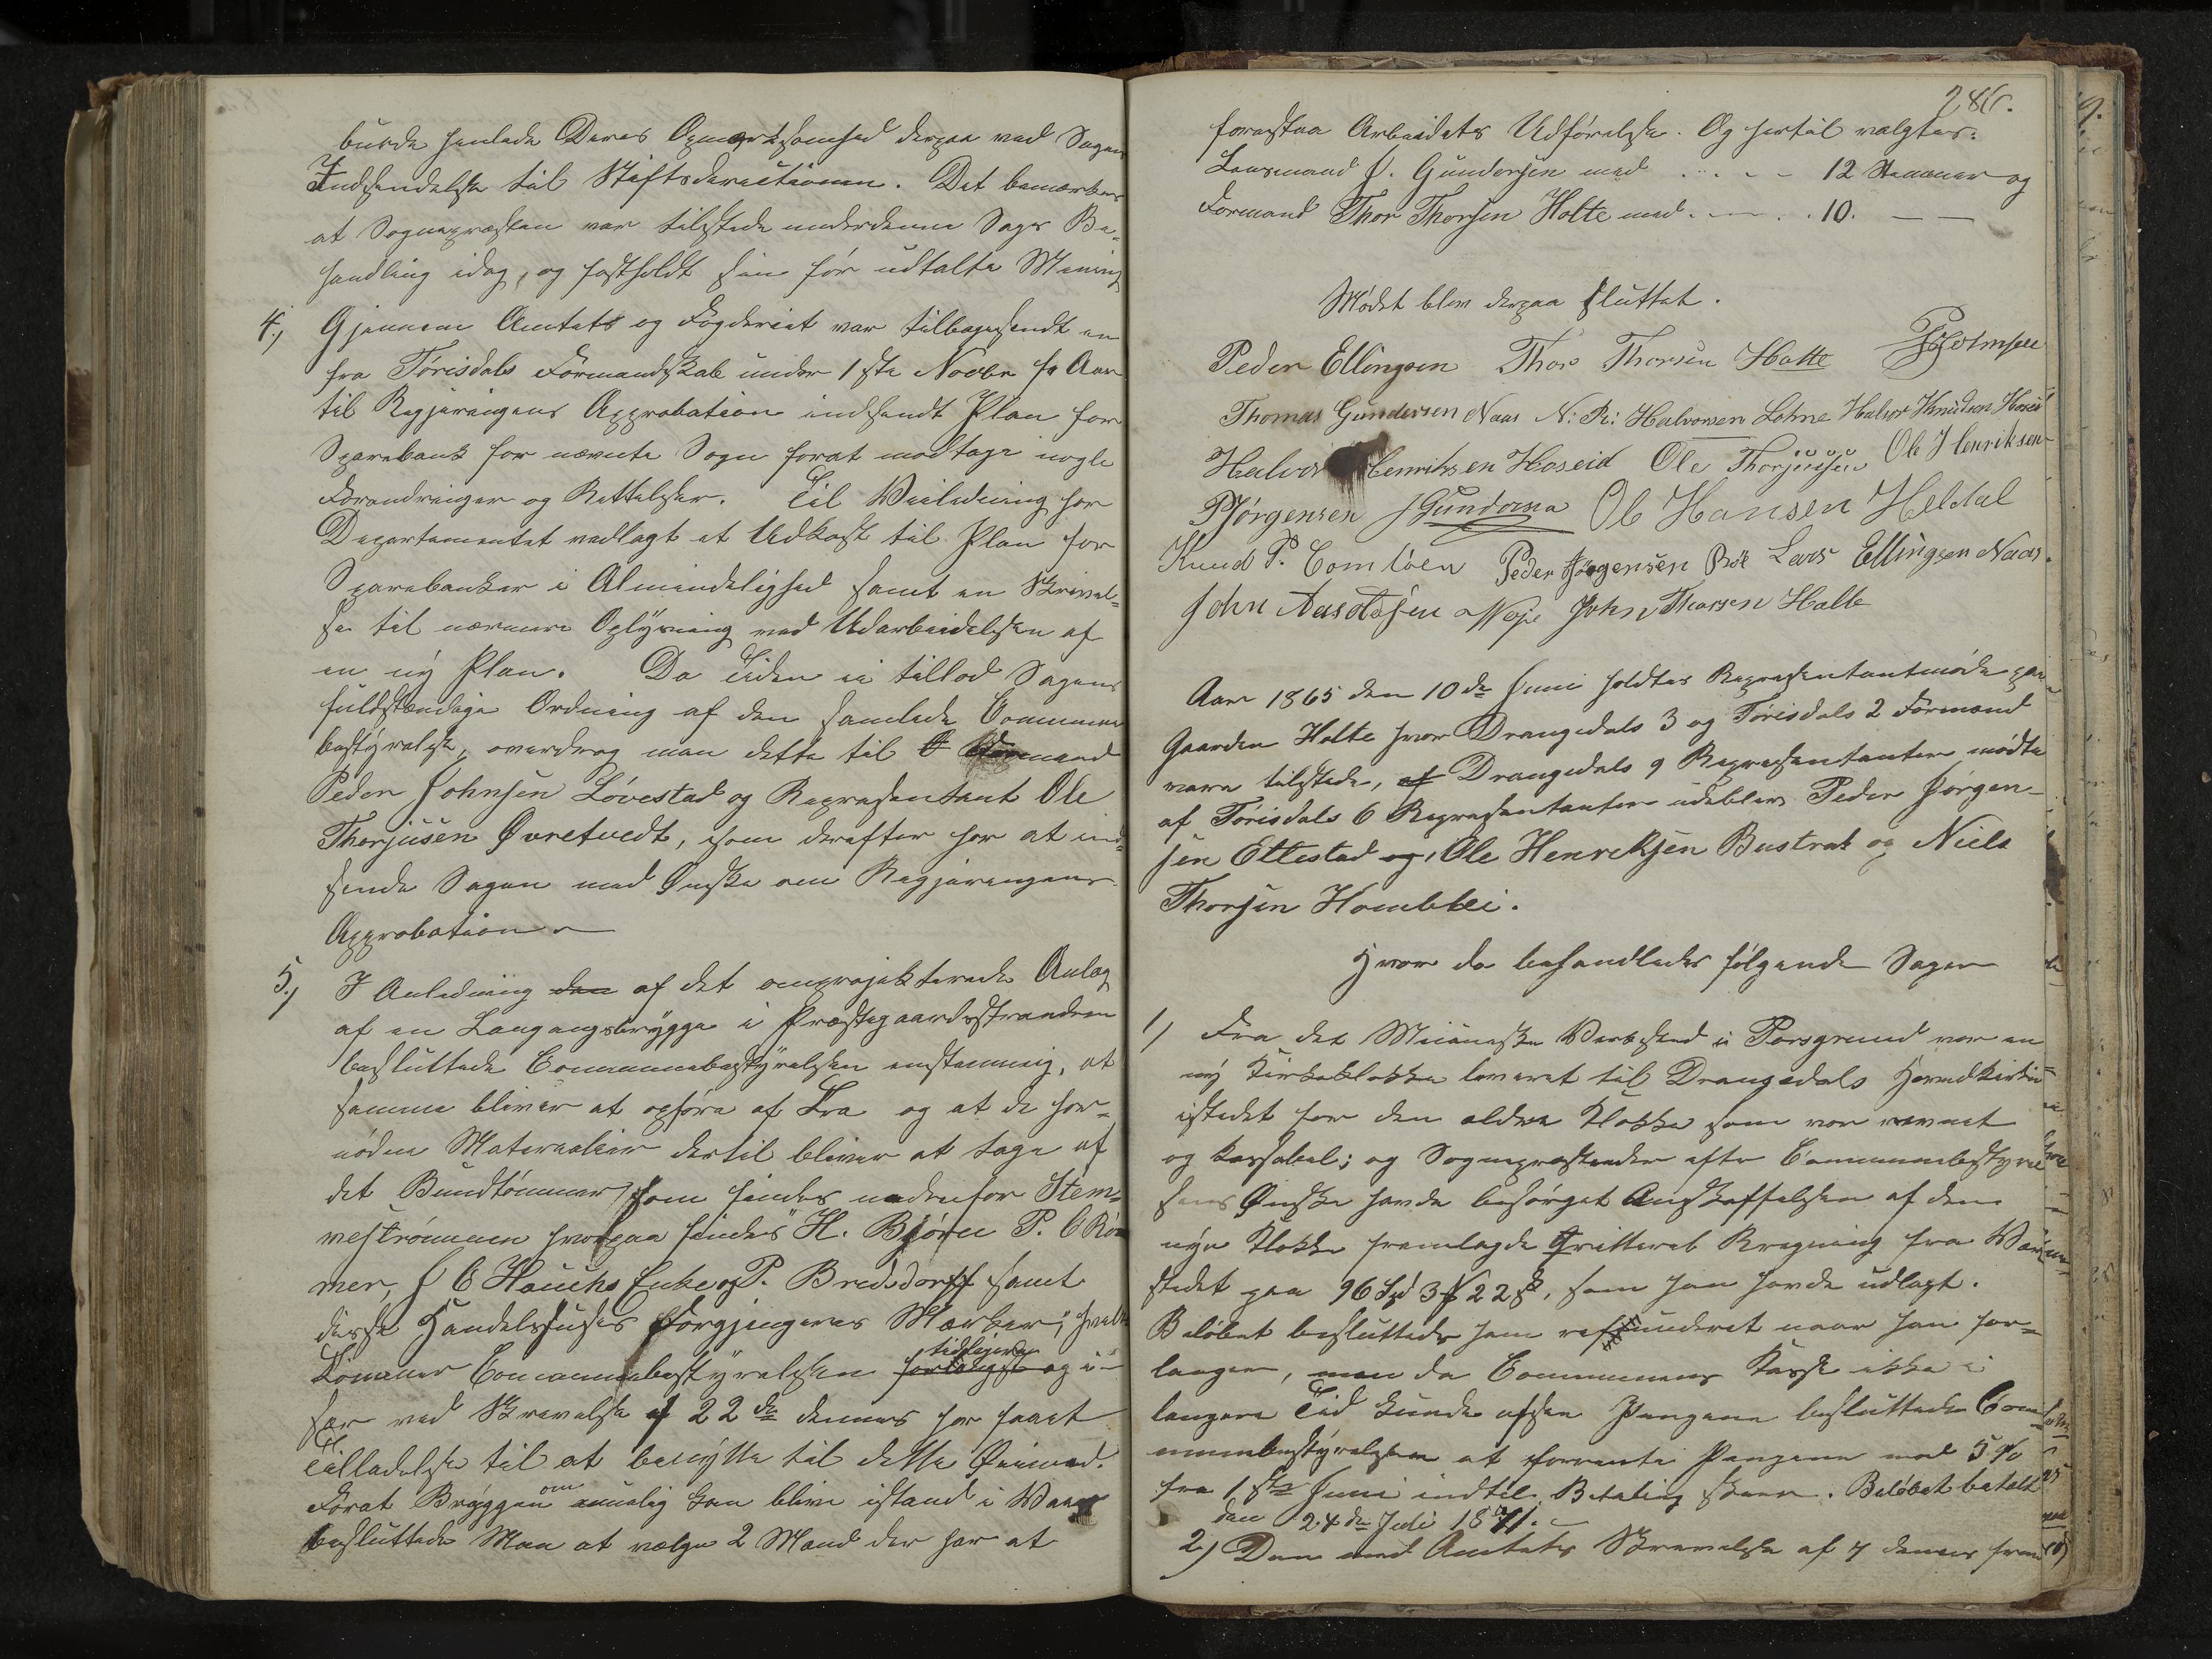 burde henlede Deres Opmærksomhed derpaa ved Sagens
Indsendelse til Stiftsdirectionen. Det bemærkes
at Sognepræsten var tilstede under denne Sags Be-
handling idag, og fastholdt sin før udtalte Mening
4.) Gjennem Amtet og Fogderiet var tilbagesendt en
fra Tørisdals Formandskab under 1ste Novbr f. Aar
til Regjeringens Approbation indsendt Plan for
Sparebank for nævnte Sogn forat modtage nogle
Forandringer og Rettelser. Til Veiledning har
Departementet vedlagt et Udkast til Plan for
Sparebanker i Almindelighed samt en Skrivel-
se til nærmere Oplysning ved Udarbeidelsen af
en ny Plan. Da Tiden ei tillod Sagens
fuldstændige Ordning af den samlede Commune
bestyrelse, overdrog man dette til Formand
Peder Johnsen Løvestad og Repræsentant Ole
Thorjusen Øvretvedt, som derefter har at ind-
sende Sagen med Ønske om Regjeringens
Approbation
5.) I Anledning den af det omprojekterede Anlæg
af en Langangsbrygge i Præstegaardsstranden
besluttede Communebestyrelsen enstemmig, at
samme bliver at opføre af Træ og at de for-
nødne Materialier dertil bliver at tage af
det Bundtømmer som findes nedenfor Stem-
vestrømmen hvorpaa findes H. Bjørn P. C Røm
mer, J C Houchs Enke og P. Bredsdorff samt
disse Handelshuses Forgjængeres Mærker, hvilke
Tømmer Communebestyrelsen forlængst tidligere og i-
før ved Skrivelse af 22de dennes har faaet
Tilladelse til at benytte til dette Øiemed.
Forat Bryggen om muelig kan blive istand i Vaar
besluttede Man at vælge 2 Mænd der har at
286.
forestaa Arbeidets Udførelse. Og hertil valgtes:
Lensmand J. Gundersen med . . . . 12 Stemmer og
Formand Thor Thorsen Holte med . . . 10. — —
Mødet blev derpaa sluttet.
Peder Ellingsen Thor Thorsen Holte
Thomas Gundersen Naas N: R: Halvorsen Lohne Halvor Knudsen Hoseid
Halvor Henriksen Hoseid Ole Thorjusen Ole Henriksen
P Jørgensen J Gundersen Ole Hansen Heldal
Knud P. Tomtøen Peder Jørgensen Lars Ellingsen Naas.
John Aasoldsen John Thorsen Holte
Aar 1865 den 10de Juni holdtes Repræsentantmøde paa
Gaarden Holte hvor Drangedals 3 og Tørisdals 2 Formænd
vare tilstede, af Drangedals 9 Repræsentanter mødte
af Tørisdals 6 Repræsentanter udeblev Peder Jørgen-
sen Ettestad og, Ole Henriksen Bustrak og Niels
Thorsen Homblei.
Hvor da behandledes følgende Sager
1) Fra det Værksted i Porsgrund var en
ny Kirkeklokke leveret til Drangedals Hovedkirke
istedet for den ældre Klokke som var revnet
og kassabel; og Sognepræsten der efter Communebestyrel
sens Ønske havde besørget Anskaffelsen af den
nye Klokke fremlagde qvitteret Regning fra Værk
stedet paa 96 Spd 3 # 22 ß, som han havde udlagt.
Beløbet besluttedes ham refunderet naar han for-
langer, men da Communens Kasse ikke i
længere Tid kunde afsee Pengene besluttede Com-
munebestyrelsen at forrente Pengene med 5 %
fra 1ste Juni indtil Betaling skeer. Beløbet betalt
den 24de Juli 1871.
2) Den med Amtets Skrivelse af 7 dennes frem